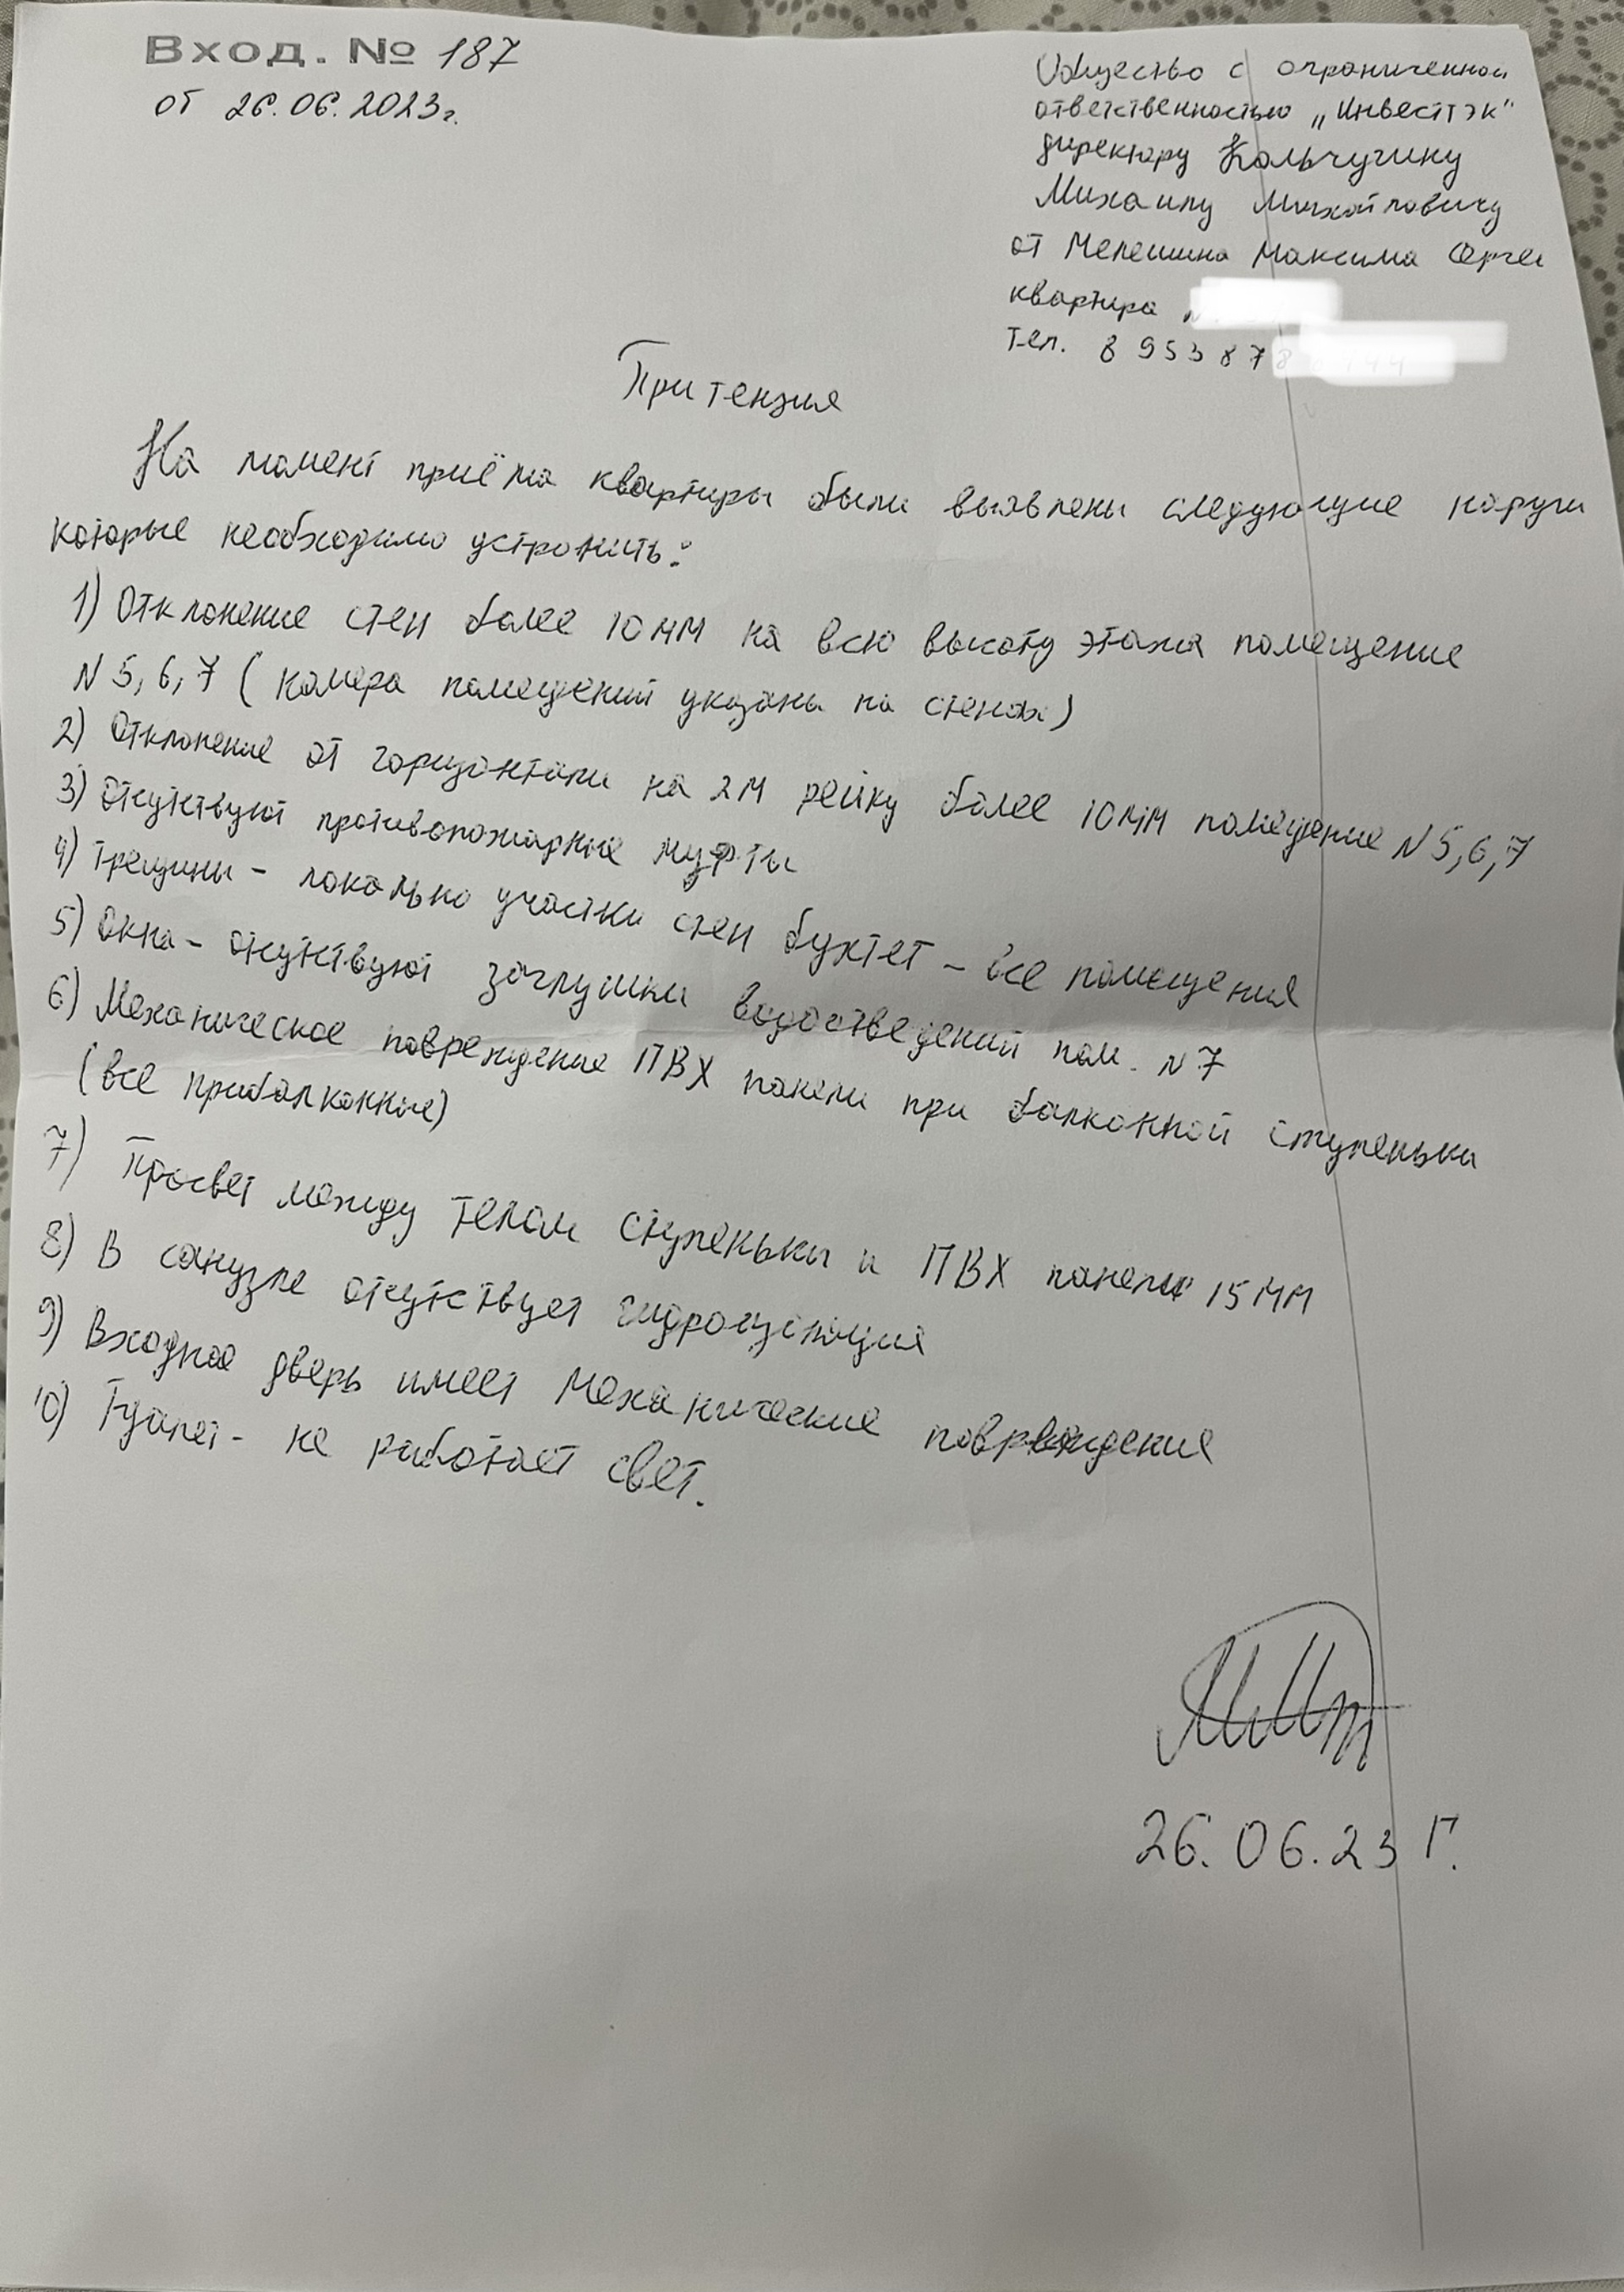 Вход. № 187
от 26.06.2023г.
Общество с ограниченной
ответственностью „Инвестгэк"
директору Кольчугину
Михаилу Михайловичу
от Мелешина Максима Серге
квартира
Тел. 8 953 87
Притензия
На момент приёма квартиры были выявлены следующие наруш
которые необходимо устронить:
1) Отклонение стен более 10 мм на всю высоту этажа помещение
N 5, 6, 7 (номера помещений указаны на стенах)
2) Отклонение от горизонтали на 2м рейку более 10мм помещение N 5, 6, 7
3) Отсутствуют противопожарные муфты
4) Трещины - локально участки стен бухтет - все помещения
5) Окна - отсутствуют заглушки водоотведений пом. N 7
6) Механическое повреждение ПВХ панели при балконной ступеньки
(все прибалконные)
7) Просвет между телом ступеньки и ПВХ панели 15 мм
8) В санузле отсутствует гидроизоляция
9) Входная дверь имеет механические повреждения
10) Туалет - не работает свет.
26.06.23 г.